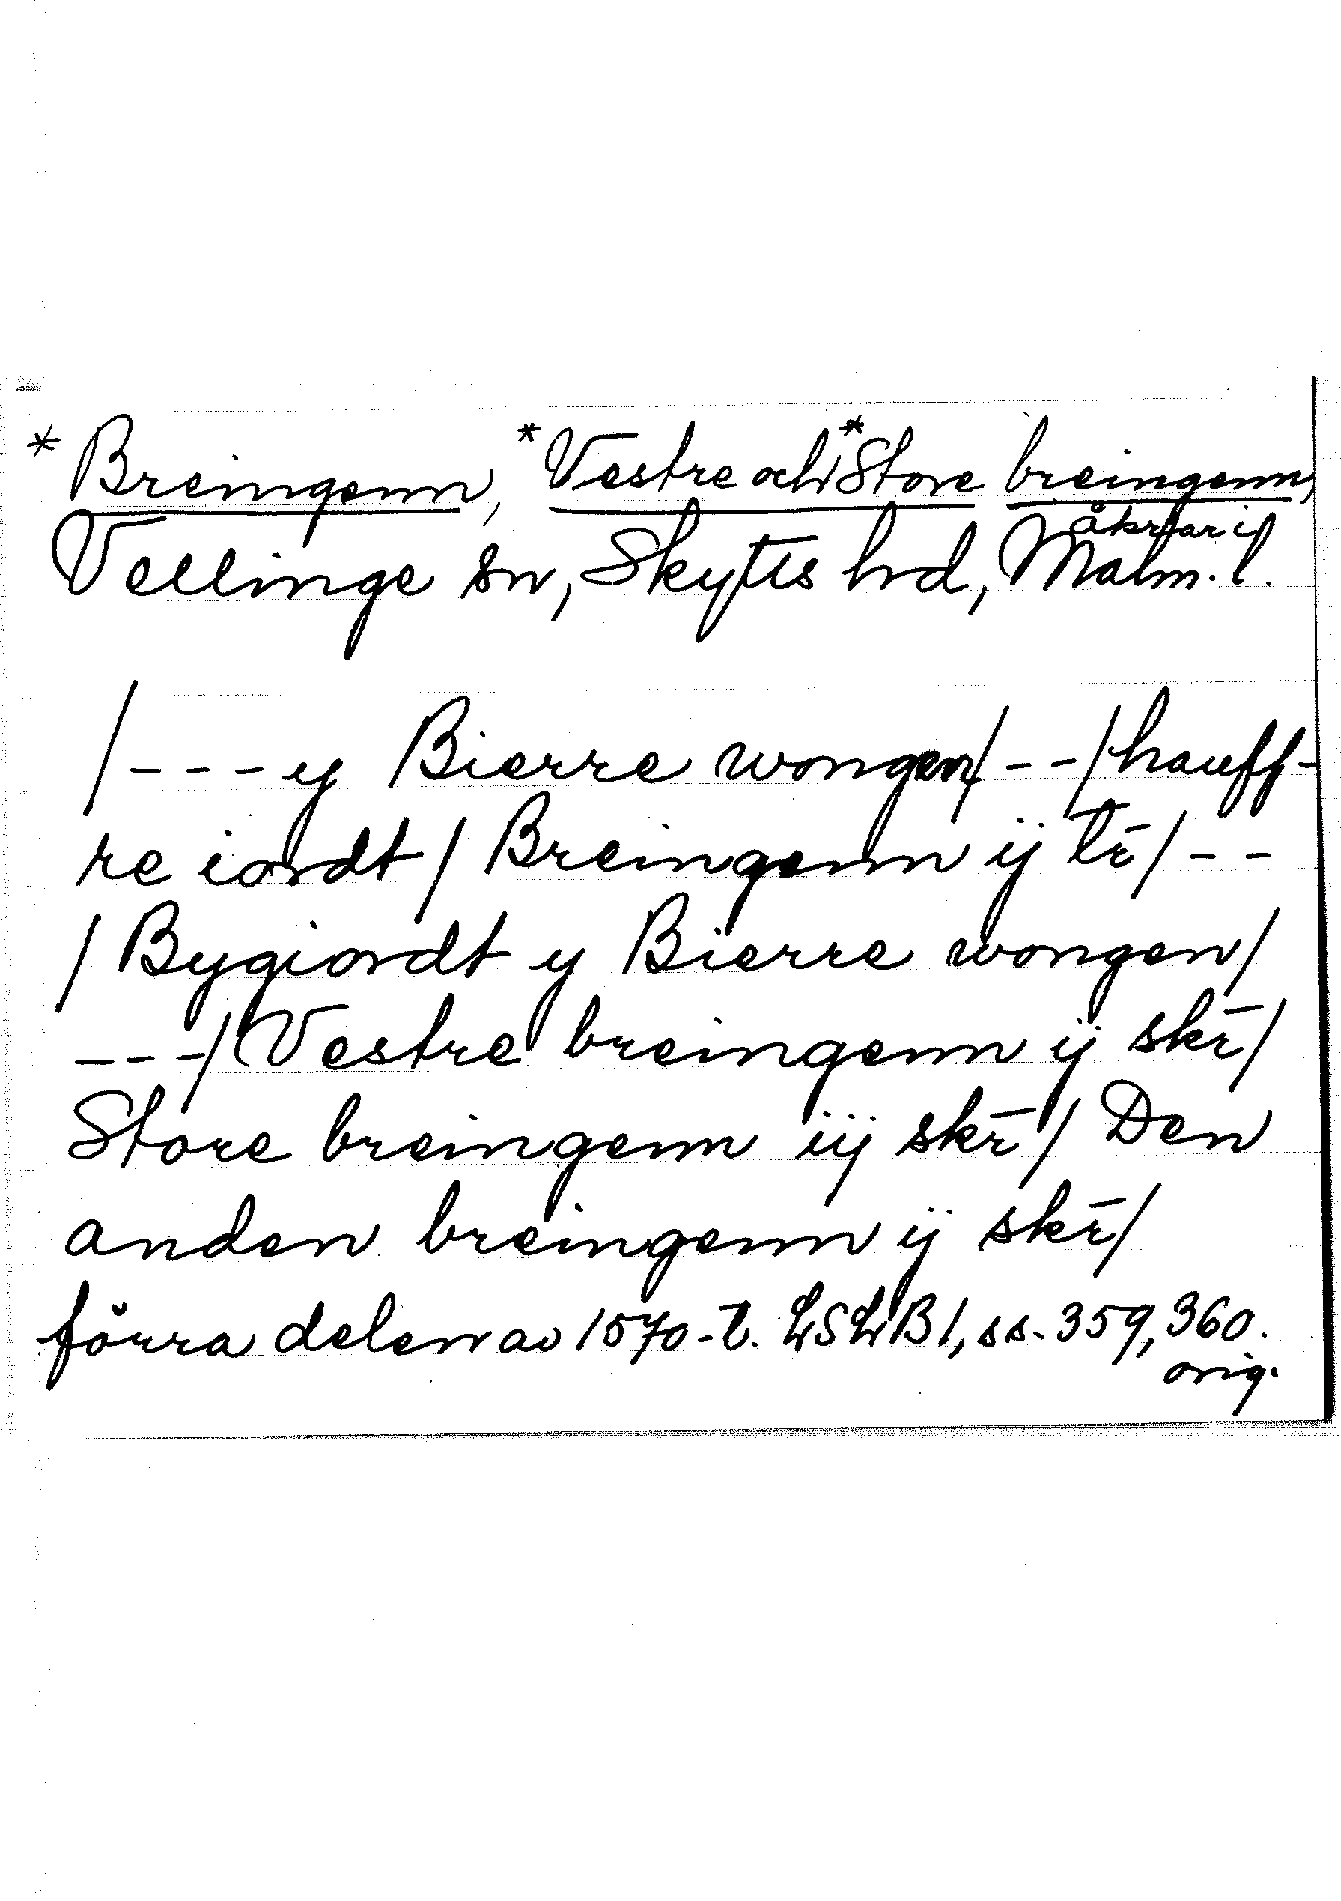 *Breingenn, *Vestre och *Store breingenn,
åkrar i
Vellinge sn, Skytts hd, Malm. l.
/--- y Bierre wongen/--/hauff-
re iordt/ Breingenn ij tr̄/--
/Bygiordt y Bierre wongen/
---/Vestre breingenn ij skr̄/
Store breingenn iij skr̄/ Den
anden breingenn ij skr̄/
förra delen av 1570-t. LSLB1, ss. 359, 360.
orig.